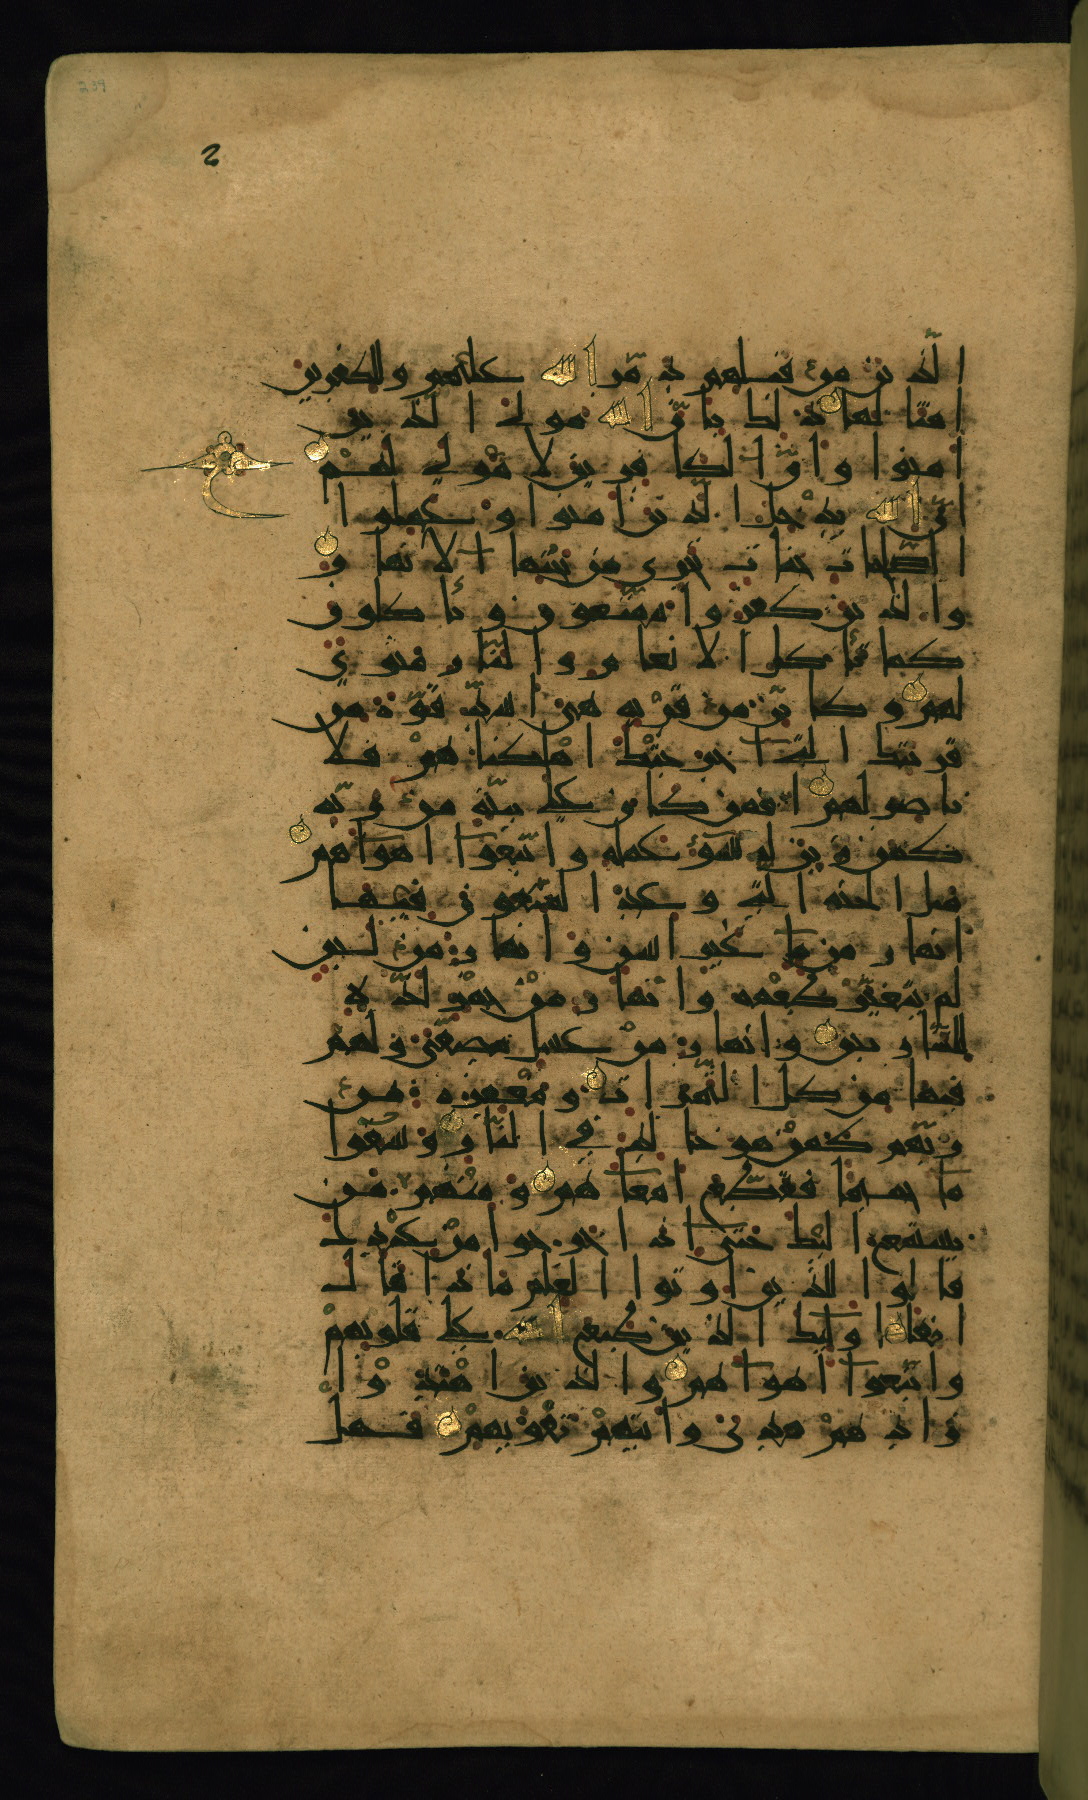 239
الذين من قبلهم دمر الله عليهم وللكفرين
امثالها ذلك بان الله مولى الذين
امنوا وان الكافرين لا مولى لهم
ان الله يدخل الذين امنوا وعملوا
الصلحات جنات تجري من تحتها الانهار
والذين كفروا يتمتعون وياكلون
كما تاكل الانعام والنار مثوى
لهم وكاين من قرية هي اشد قوة من
قريتك التي اخرجتك اهلكناهم فلا
ناصر لهم افمن كان على بينة من ربه
كمن زين له سوء عمله واتبعوا اهواهم
مثل الجنة التي وعد المتقون فيها
انهار من ماء غير اسن وانهار من لبن
لم يتغير طعمه وانهار من خمر لذة
للشاربين وانهار من عسل مصفى ولهم
فيها من كل الثمرات ومغفرة من
ربهم كمن هو خالد في النار وسقوا
ماء حميما فقطع امعاهم ومنهم من
يستمع اليك حتى اذا خرجوا من عندك
قالوا للذين اوتوا العلم ماذا قال
انفا اولئك الذين طبع الله على قلوبهم
واتبعوا اهواهم والذين اهتدوا
زادهم هدى واتيهم تقويهم فهل